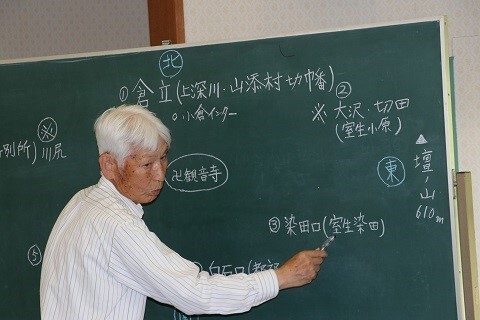 北
①倉立(上深川・山添村切幡)
○小倉インター
②
※大沢・切田
(室生小原)
※
別所)川尻
卍観音寺
東
▲壇ノ山
610m
③染田口(室生染田)
⑤